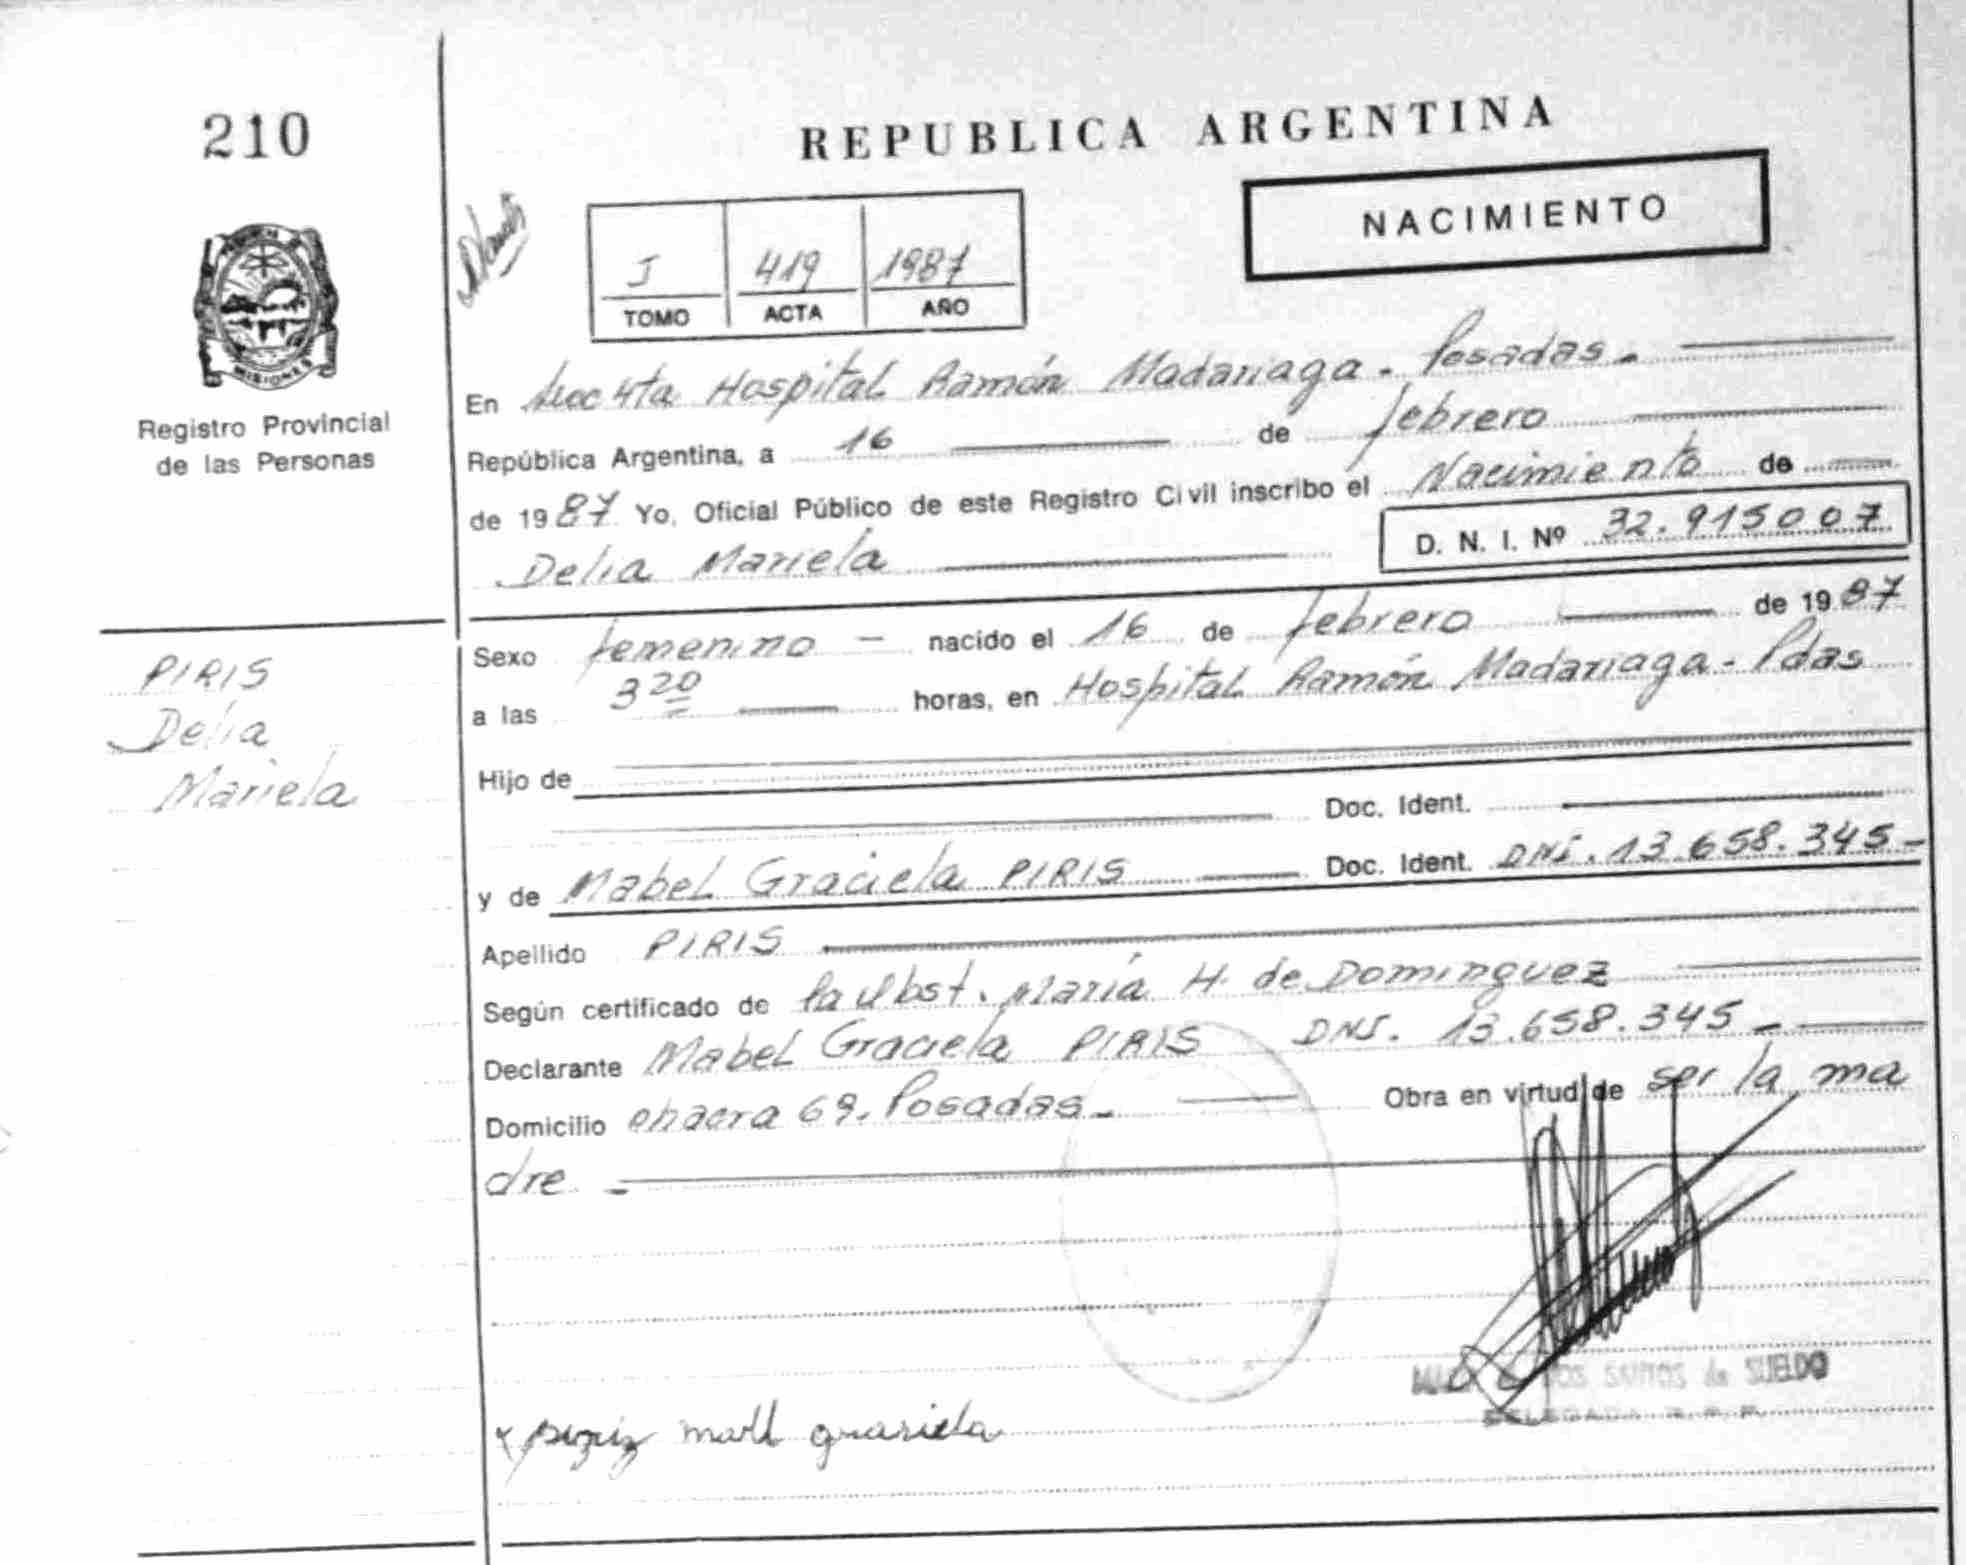 210
REPUBLICA ARGENTINA
NACIMIENTO
J 419 1987
TOMO ACTA AÑO
MISIONES
Registro Provincial
de las Personas
En Secc 4ta Hospital Ramón Madariaga - Posadas.
República Argentina, a 16 de febrero
de 1987 Yo, Oficial Público de este Registro Civil inscribo el Nacimiento de
Delia Mariela D. N. I. Nº 32.915007
PIRIS
Delia
Mariela
Sexo femenino nacido el 16 de febrero de 1987
a las 3 20 horas, en Hospital Ramón Madariaga - Pdas
Hijo de
Doc. Ident.
y de Mabel Graciela PIRIS Doc. Ident. DNI. 13.658.345-
Apellido PIRIS
Según certificado de la Obst. María H. de Dominguez
Declarante Mabel Graciela PIRIS DNI. 13.658.345 -
Domicilio chacra 69. Posadas - Obra en virtud de ser la ma
dre -
DOS SANTOS de SUELDO
DELEGADA R. P. P.
x piriz graciela